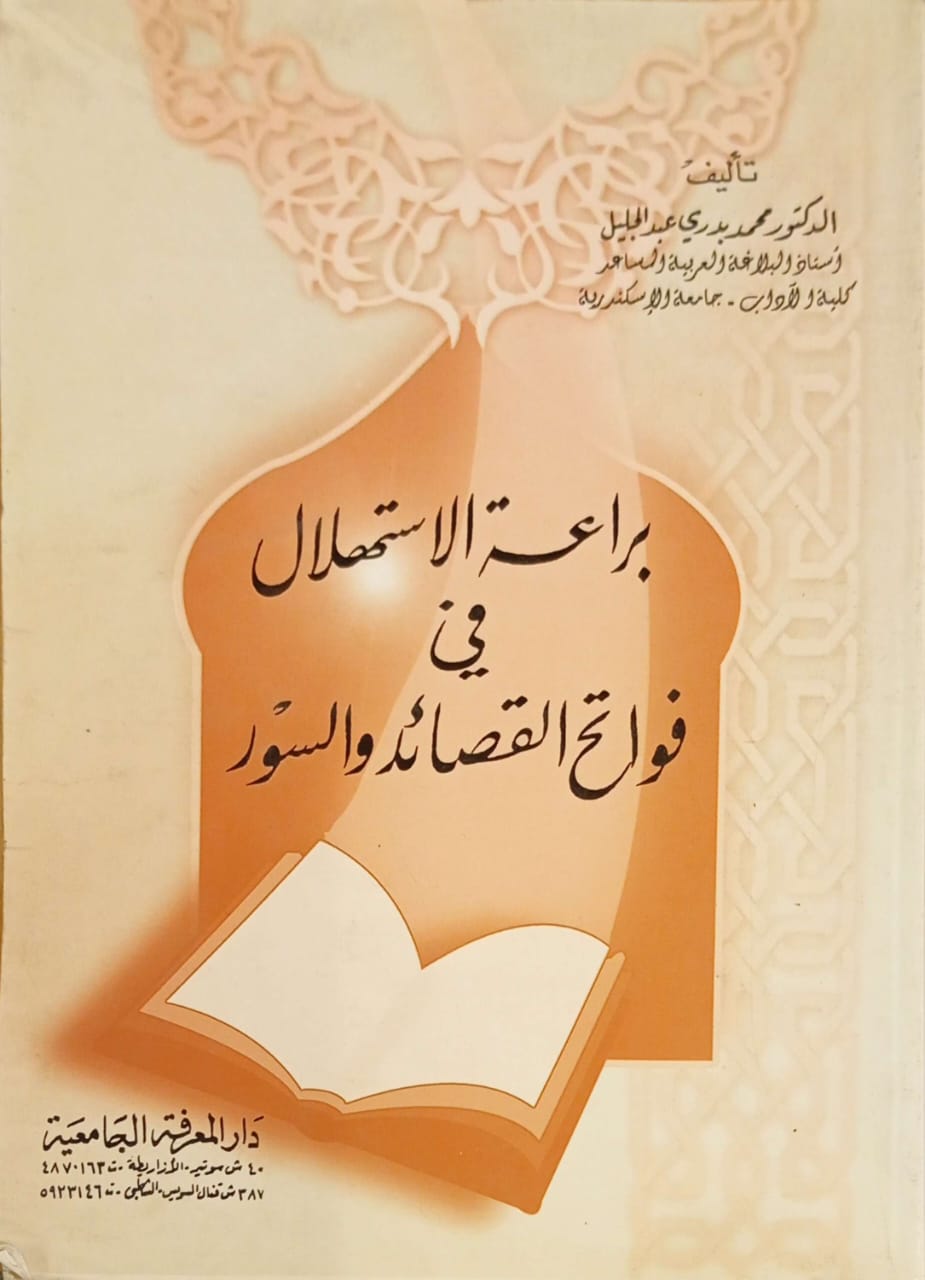 تأليف
الدكتور محمد بدري عبد الجليل
أستاذ البلاغة العربية المساعد
كلية الآداب - جامعة الإسكندرية
براعة الاستهلال
في
فواتح القصائد والسور
دار المعرفة الجامعية
٤٠ ش سوتير - الأزاريطة - ت ٤٨٧٠١٦٣
٣٨٧ ش قنال السويس - الشاطبي - ت ٥٩٢٣١٤٦